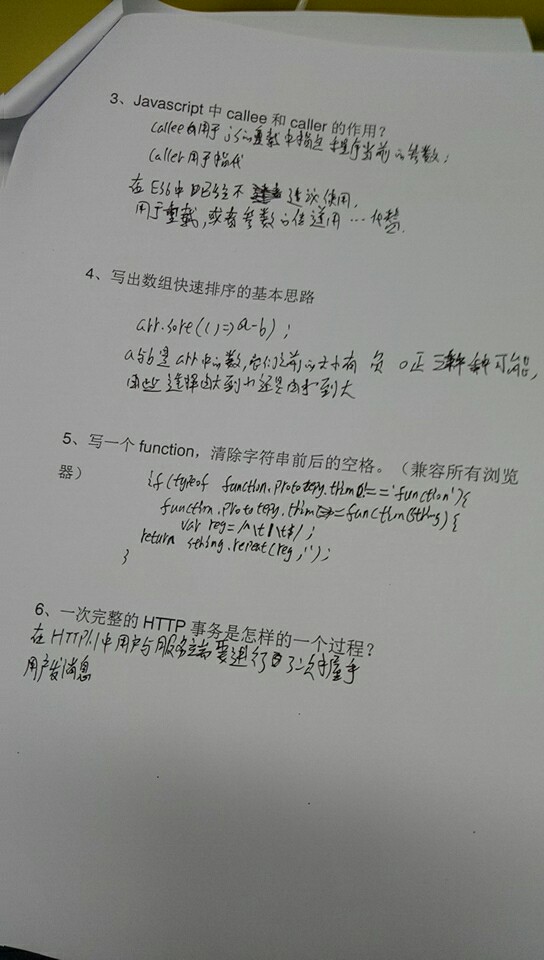 3、Javascript 中 callee 和 caller 的作用？
callee 用于js的重载中指定 程序当前的参数；
caller 用于指代
在ES6中已经不 建议使用，
用于重载，或者参数的传递用…代替.
4、写出数组快速排序的基本思路
arr.sore(()=>a-b)；
a与b是arr中的数，它们之前的大小有 负 0 正 三种可能，
由此 选择由大到小还是由小到大
5、写一个 function，清除字符串前后的空格。（兼容所有浏览
器）
if(typeof function.prototepy.thim !== 'function'){
function.prototepy.thim = function(string) {
var reg=/^\t|\t$/;
return string.repeat(reg,'');
}
6、一次完整的 HTTP 事务是怎样的一个过程？
在HTTP1.1中用户与服务端要进行了三次握手
用户发消息